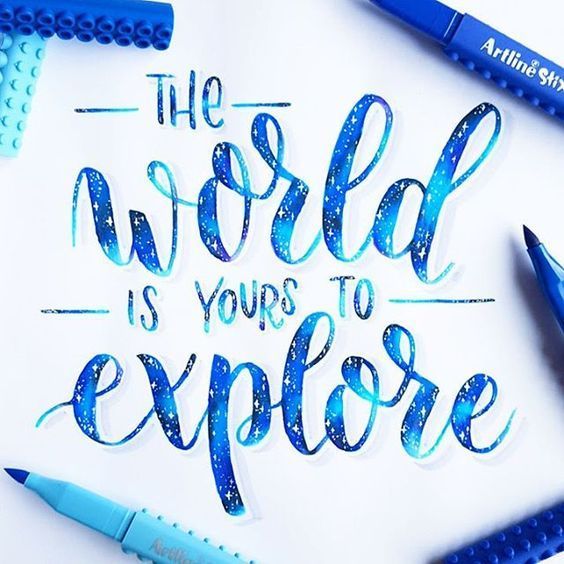 THE
world
IS YOURS TO
explore
Artline Stix
Artline